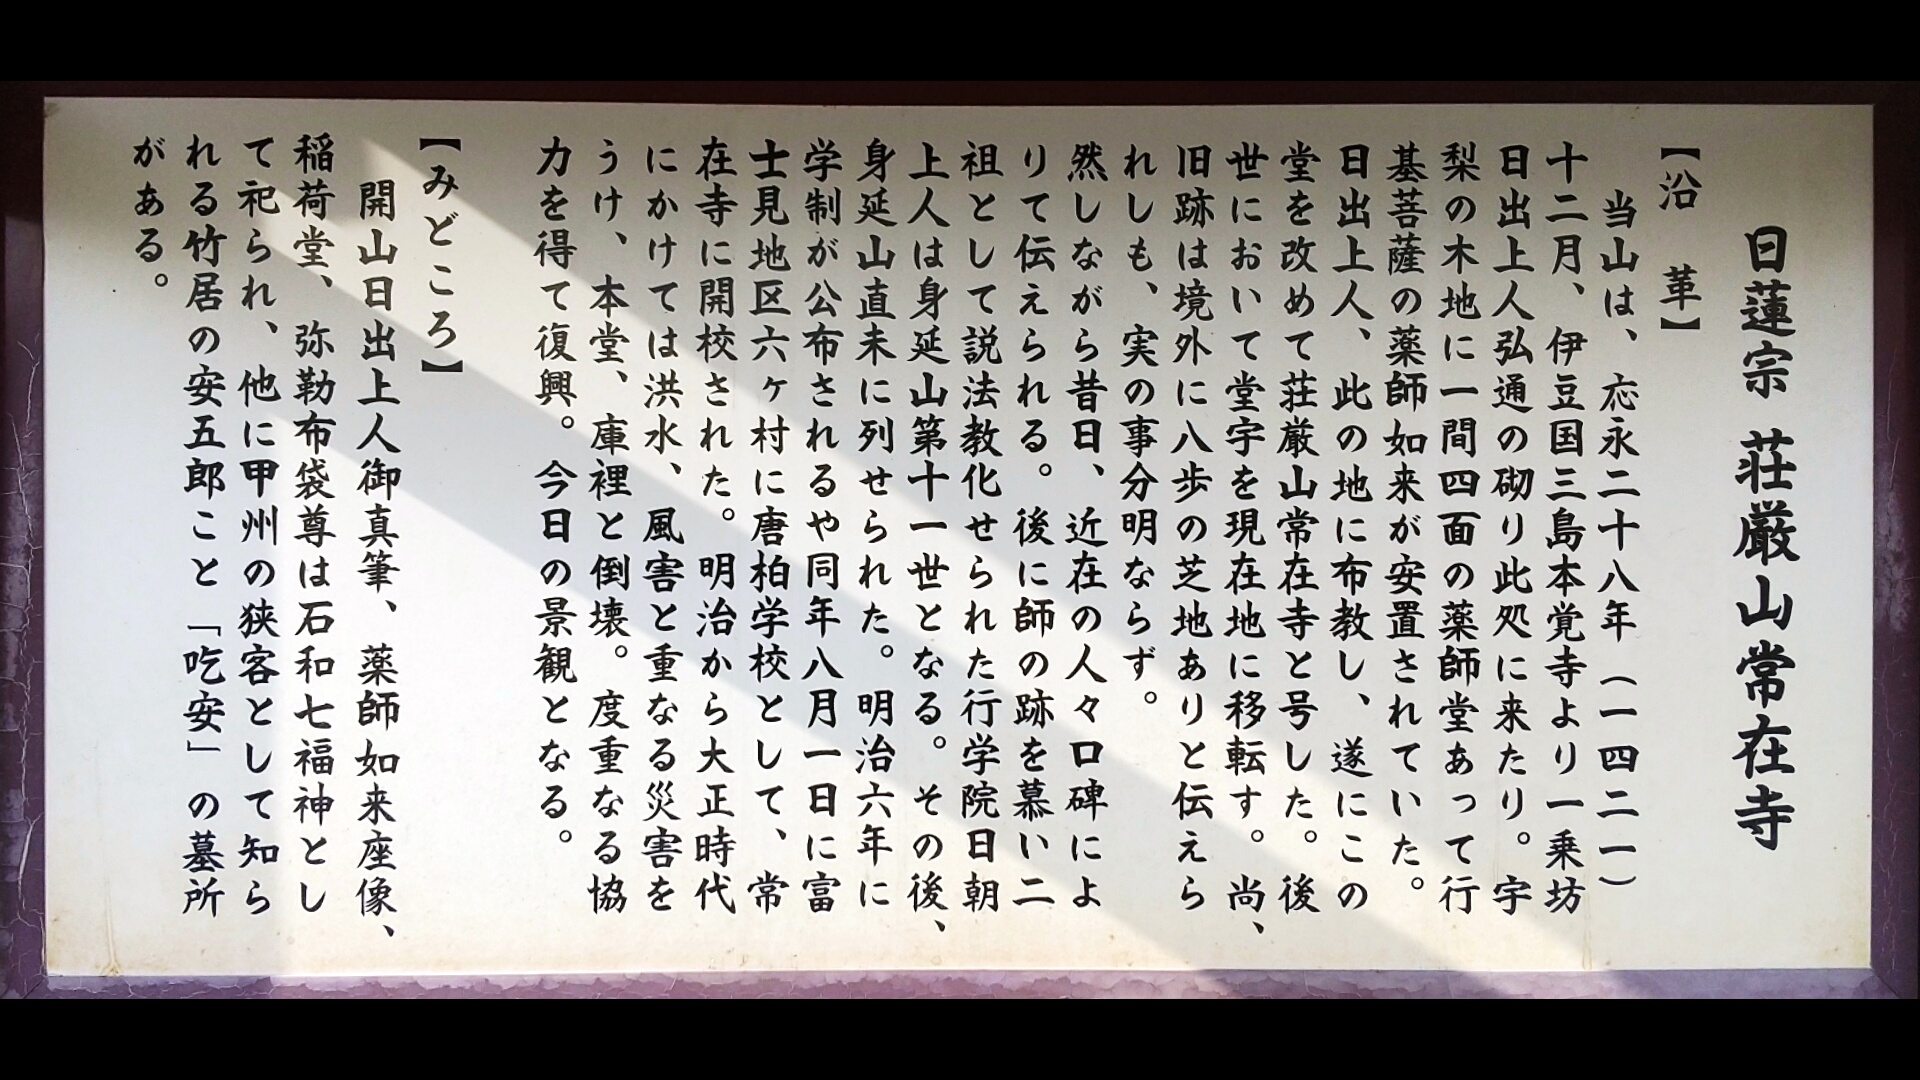 日蓮宗 荘厳山常在寺
【沿 革】
当山は、応永二十八年（一四二一）
十二月、伊豆国三島本覚寺より一乗坊
日出上人弘通の砌り此処に来たり。字
梨の木地に一間四面の薬師堂あって行
基菩薩の薬師如来が安置されていた。
日出上人、此の地に布教し、遂にこの
堂を改めて荘厳山常在寺と号した。後
世において堂宇を現在地に移転す。尚、
旧跡は境外に八歩の芝地ありと伝えら
れしも、実の事分明ならず。
然しながら昔日、近在の人々口碑によ
りて伝えられる。後に師の跡を慕い二
祖として説法教化せられた行学院日朝
上人は身延山第十一世となる。その後、
身延山直末に列せられた。明治六年に
学制が公布されるや同年八月一日に富
士見地区六ヶ村に唐柏学校として、常
在寺に開校された。明治から大正時代
にかけては洪水、風害と重なる災害を
うけ、本堂、庫裡と倒壊。度重なる協
力を得て復興。今日の景観となる。
【みどころ】
開山日出上人御真筆、薬師如来座像、
稲荷堂、弥勒布袋尊は石和七福神とし
て祀られ、他に甲州の狭客として知ら
れる竹居の安五郎こと「吃安」の墓所
がある。